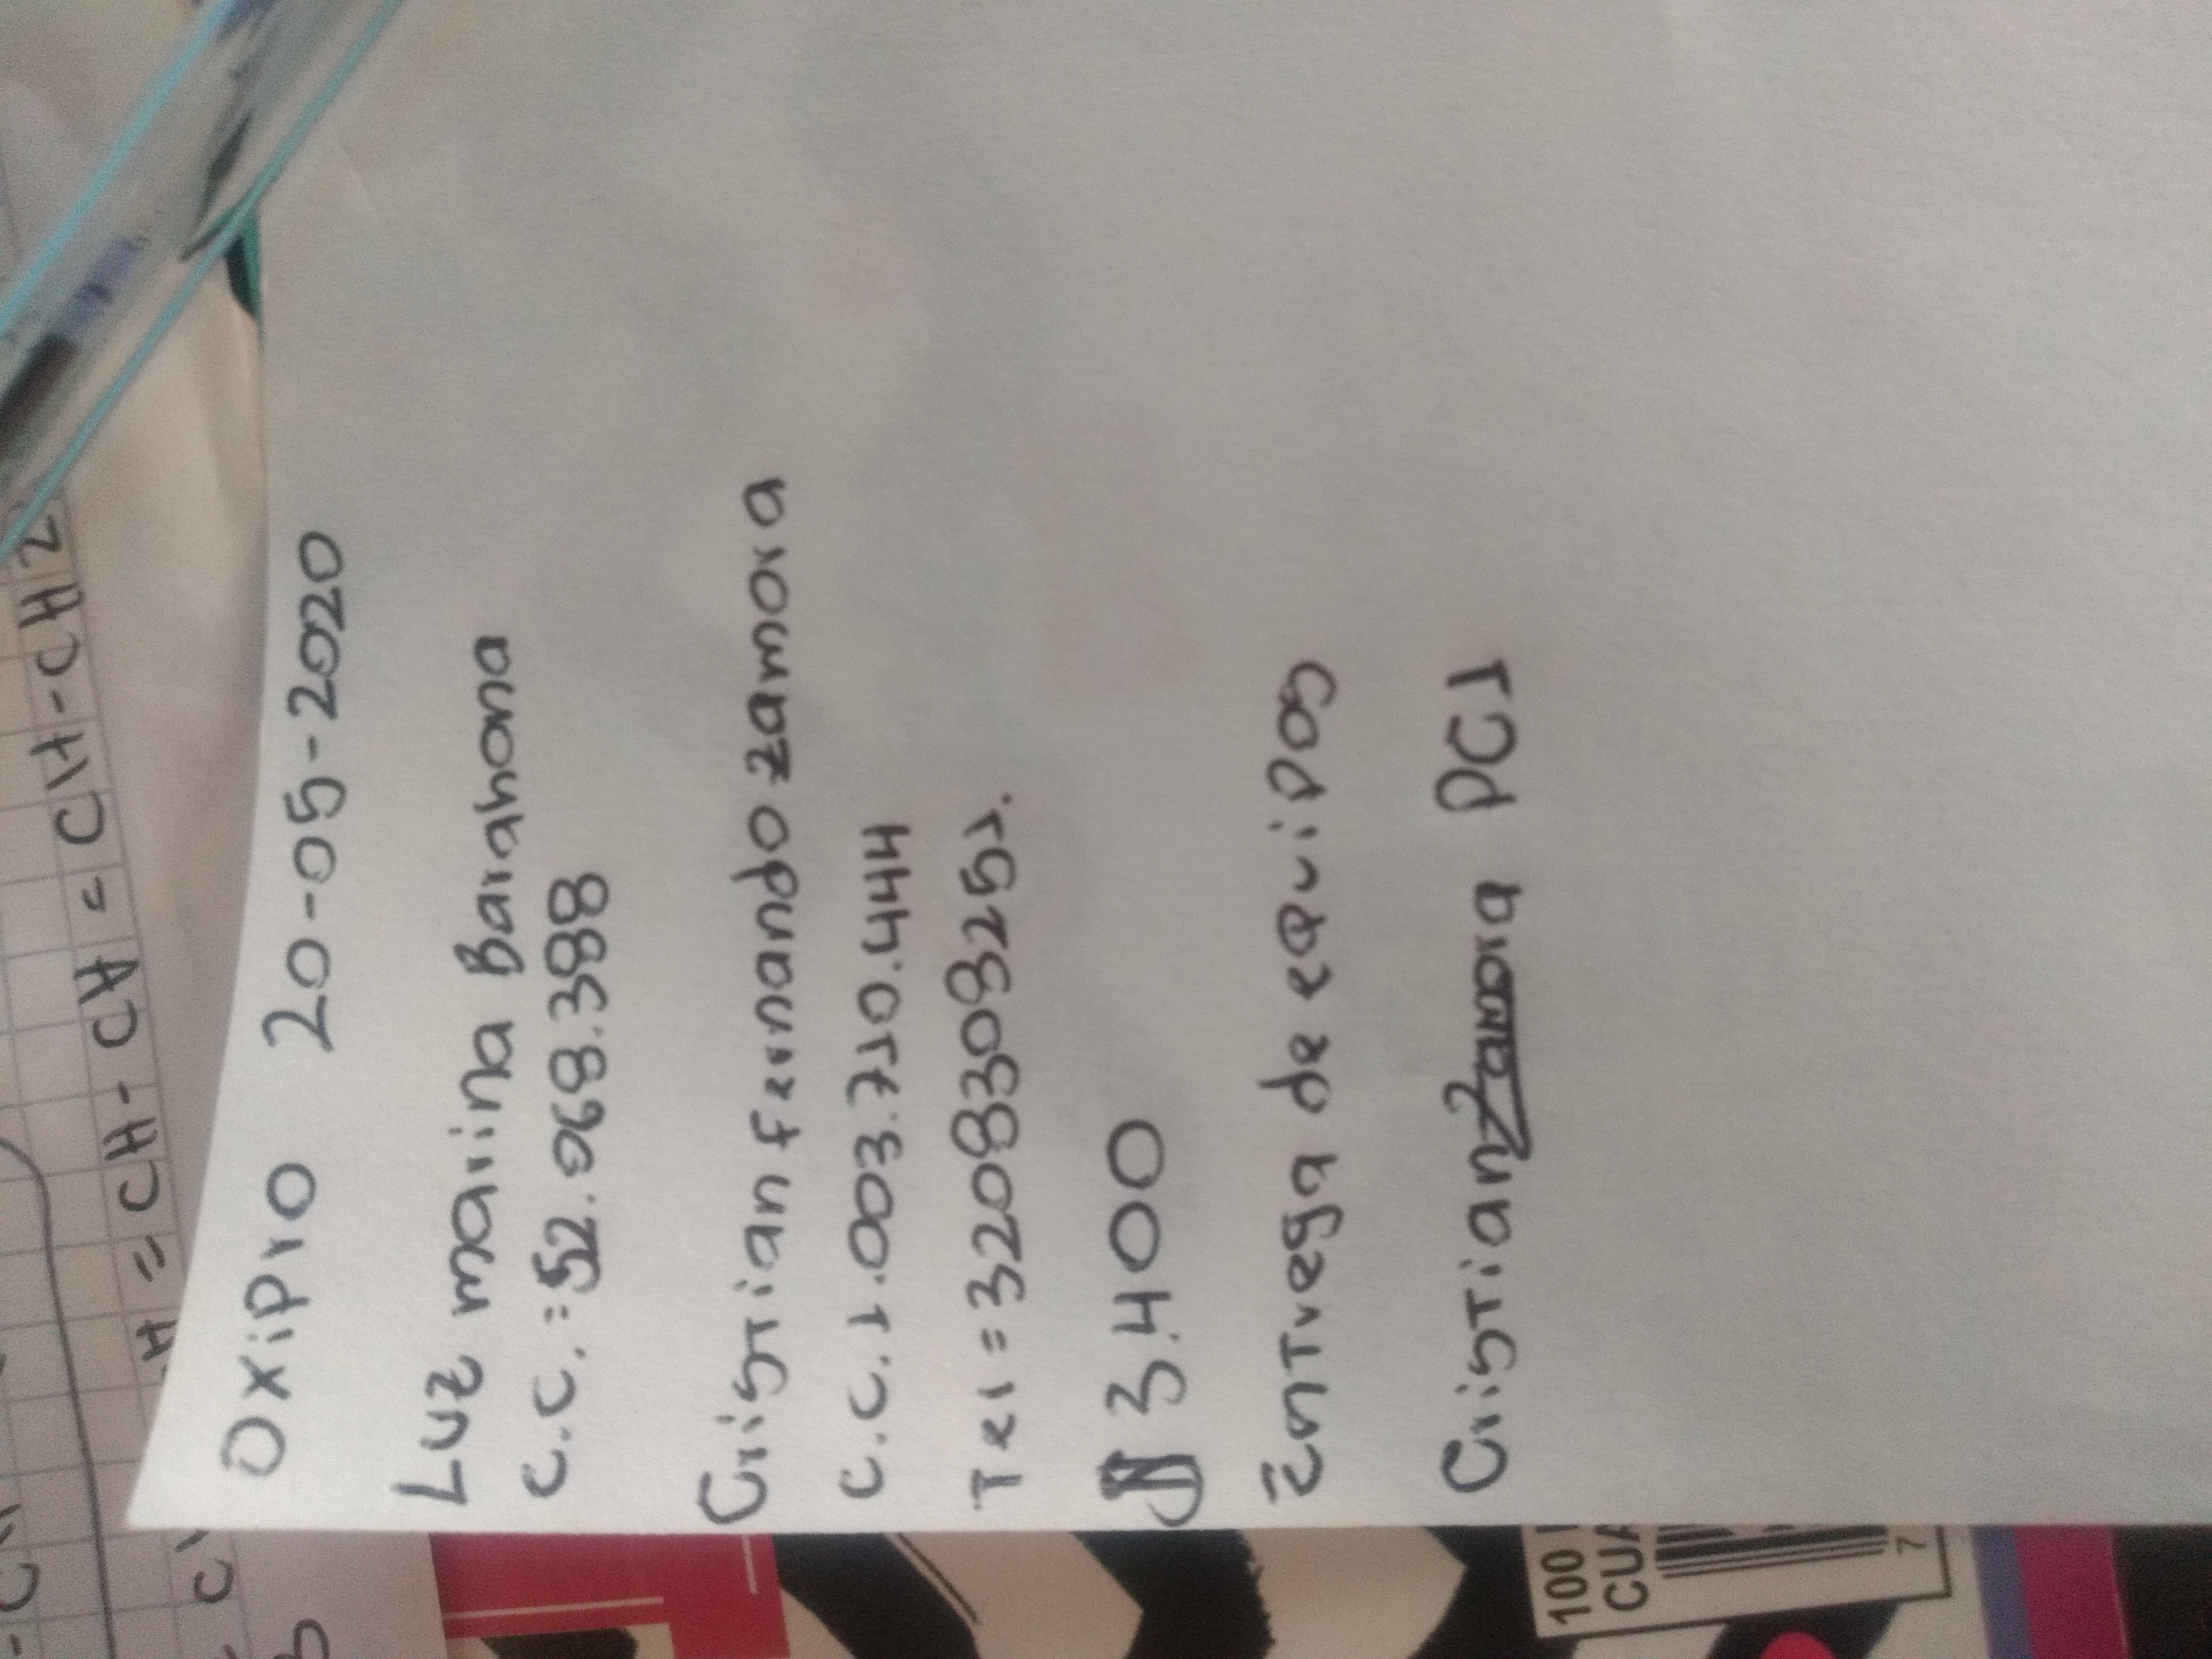 OXiPrO 20-05-2020
Luz marina Barahona
C.C.:52.068.388
Cristian fernando zamora
C.C.1.003.710.444
Tel=3208308251.
$ 3.400
Entrega de equipos
Cristian Zamora PCJ
CH-CH2
H=CH-CH=CH-CH2
100
CUA
7